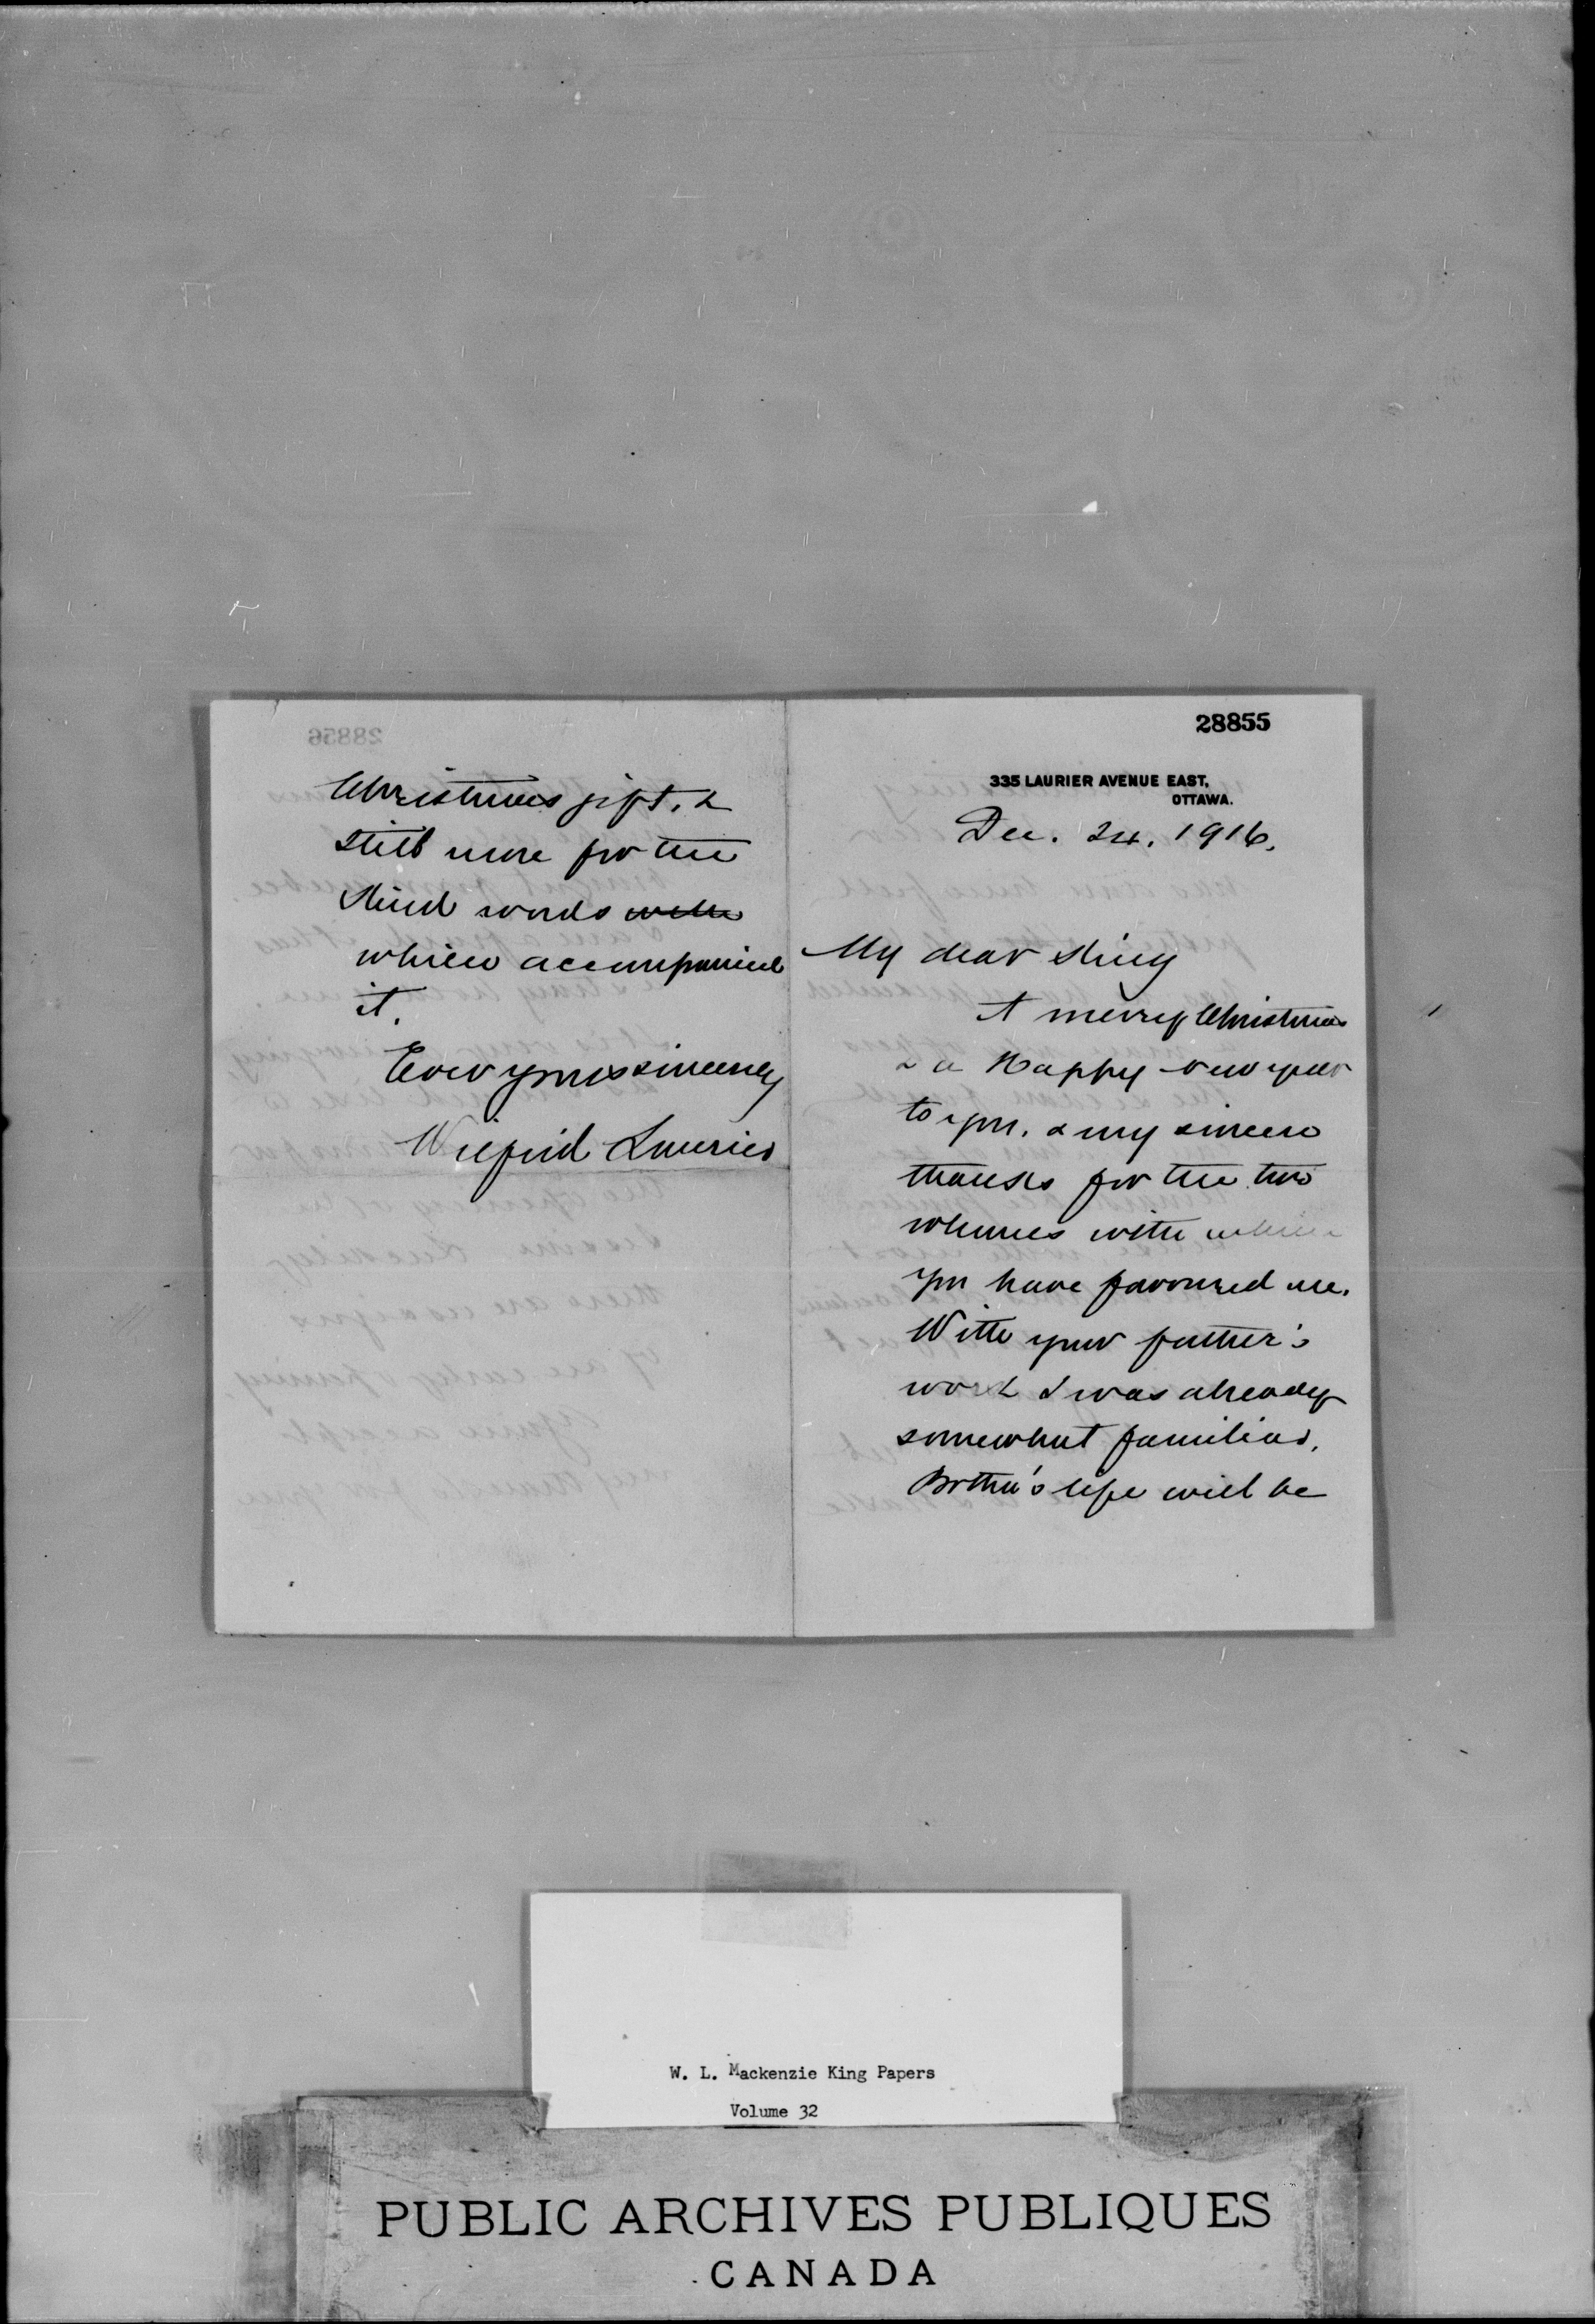 28855
335 LAURIER AVENUE EAST,
OTTAWA.
Dec. 24. 1916.
My dear King
A merry Christmas
& a Happy new year
to you. & my sincere
thanks for the two
volumes with which
you have favoured me.
With your father's
work I was already
somewhat familiar.
Botha's life will be
Christmas gift. &
still more for the
kind words
which accompanied
it.
Ever yours sincerely
Wilfrid Laurier
W. L. Mackenzie King Papers
Volume 32
PUBLIC ARCHIVES PUBLIQUES
CANADA